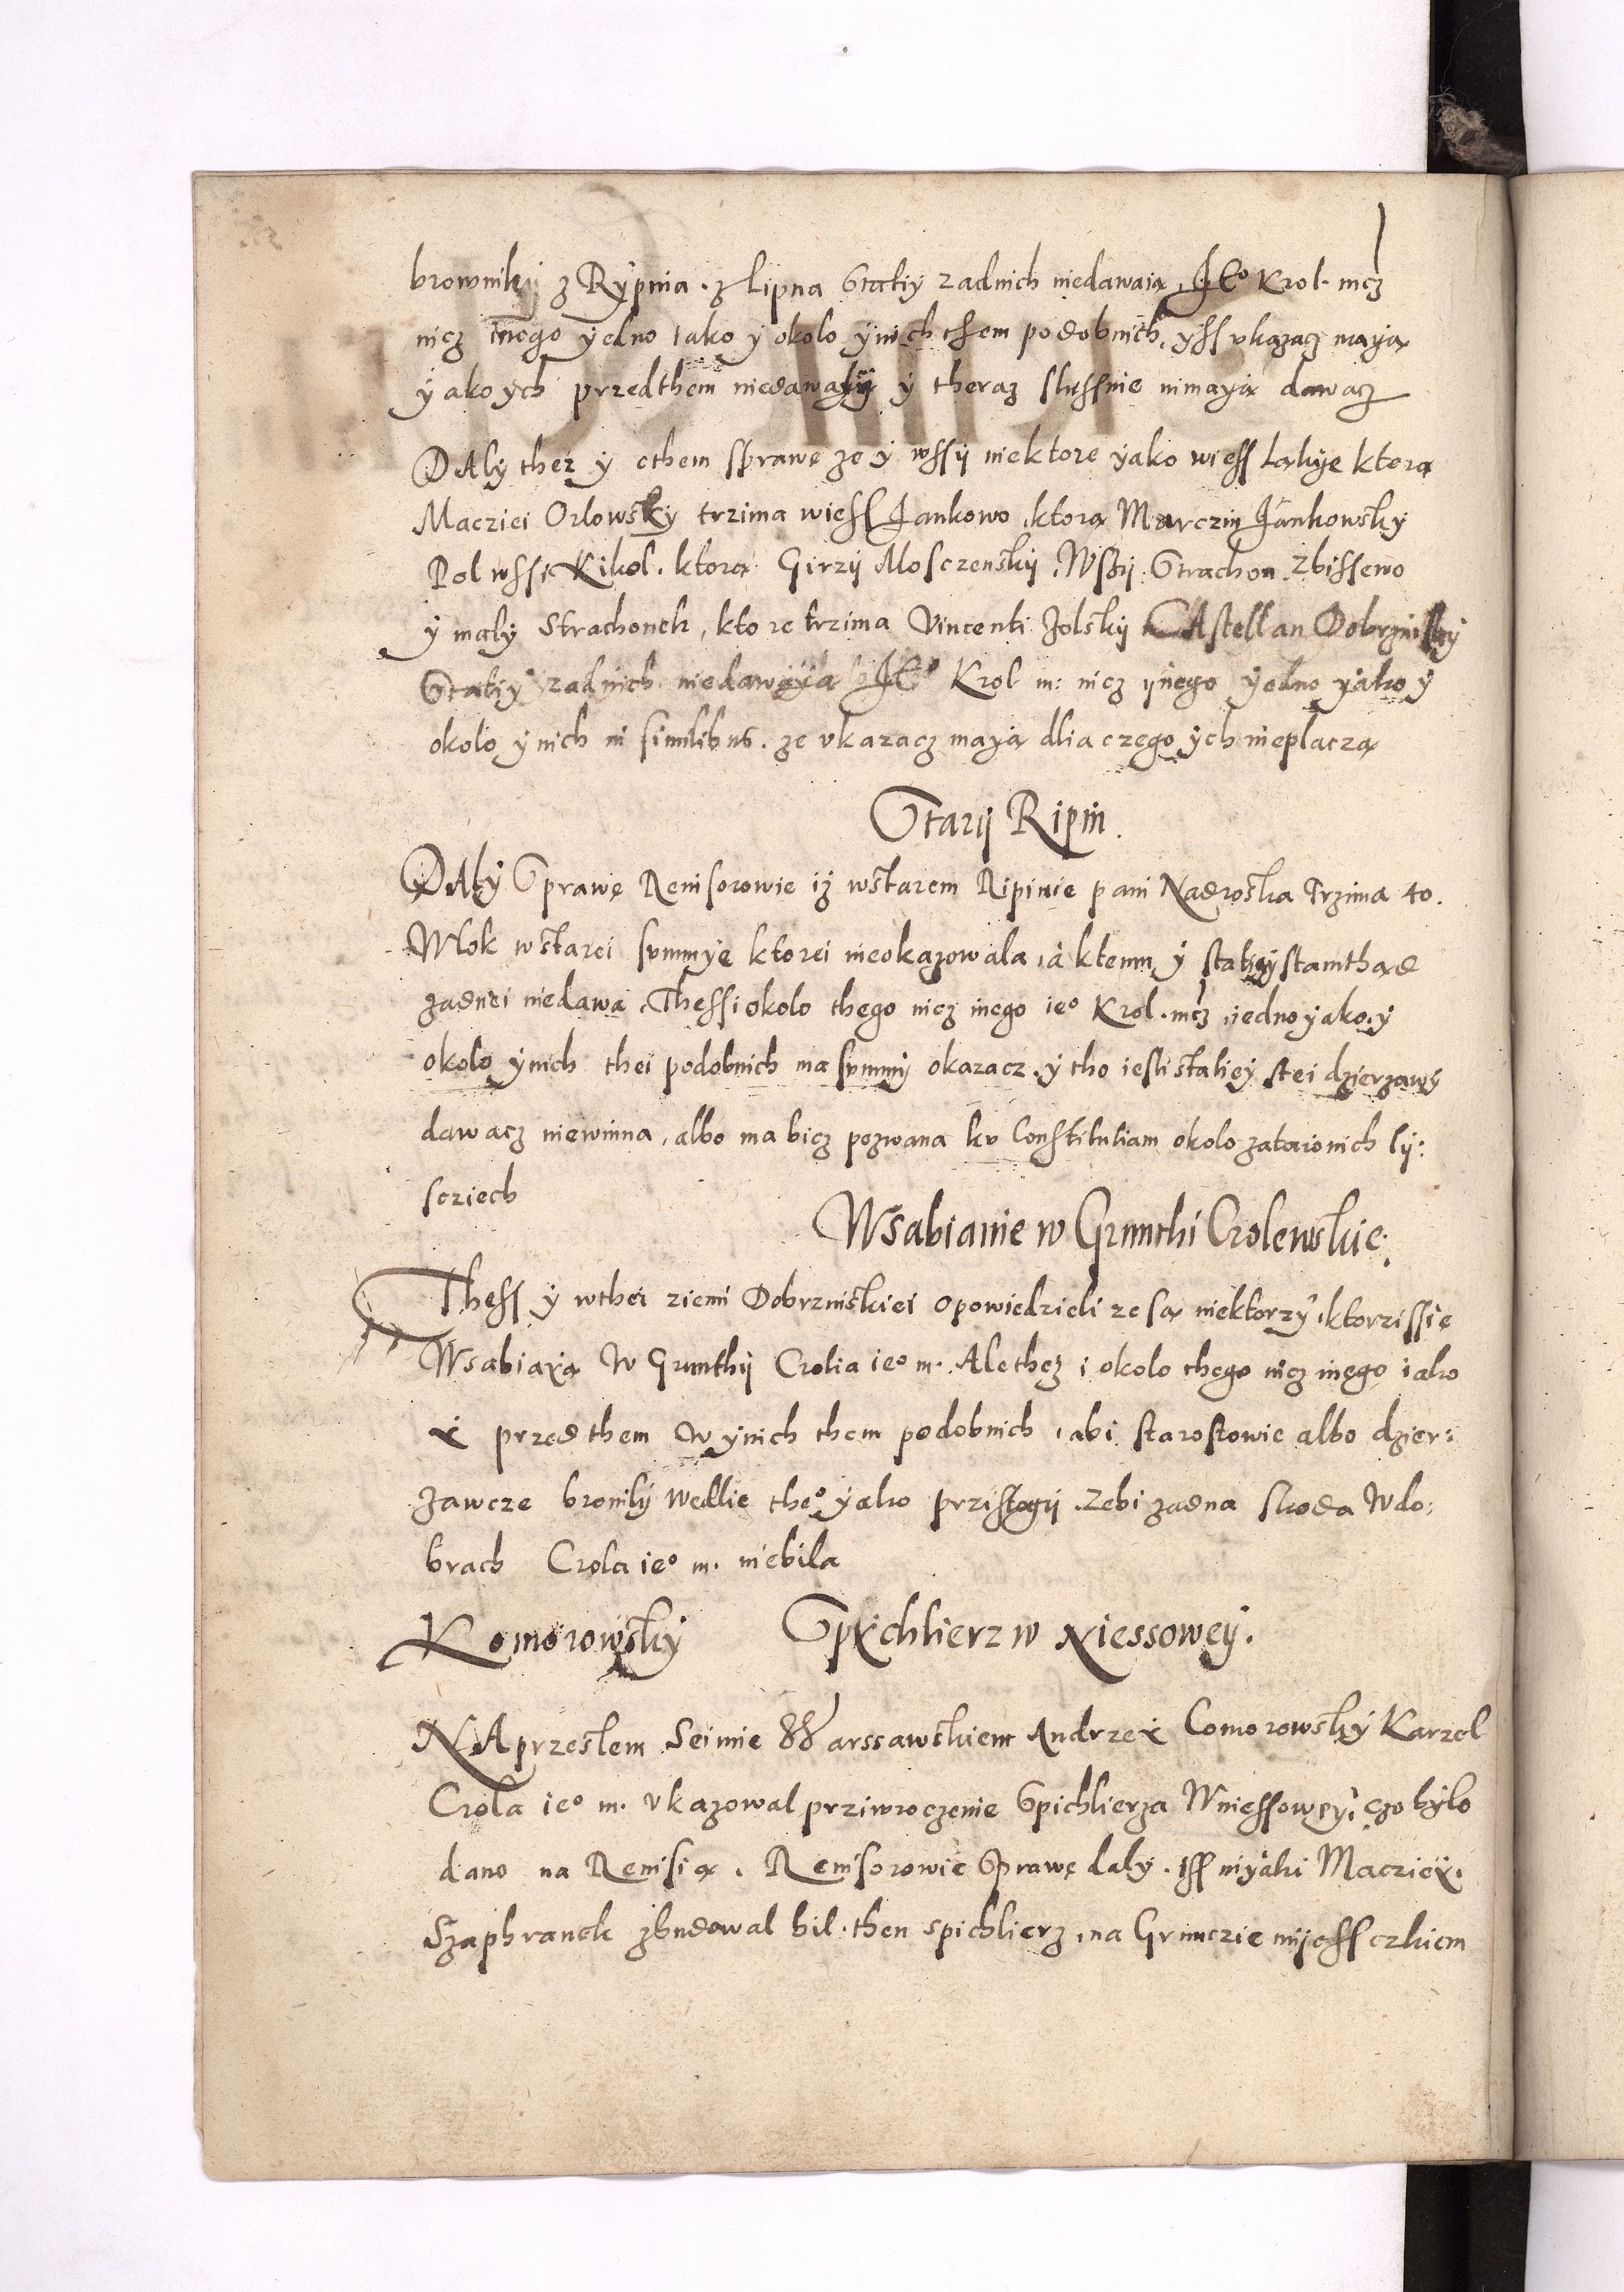 brownikÿ z Rÿpnia. z Lipna Statiÿ zadnich niedawaią, JEo Krol. mcz
nicz inego ÿedno iako ÿ okolo ÿnich them podobnich, ÿss vkazacz maÿą
ÿako ÿch przedthem niedawalÿ ÿ theraz slussnie nimaÿą dawacz
DAlÿ thez ÿ othem sprawę ze ÿ wssÿ niektore ÿako wiess Ląkÿe ktorą
Macziei Orlowskÿ trzima wiess Jankowo, ktorą Marczin Jankowskÿ
Pol wssi Kikol. ktorą Girzÿ Mosczenskÿ, Wssÿ Strachon Zbissewo
ÿ małÿ Strachonek, ktore trzima Vincenti Jolskÿ CAstellan Dobrzinskÿ
Statiÿ zadnich niedawaÿą JEo Krol m: nicz ÿnego ÿedno ÿako ÿ
okolo ÿnich in similibus. ze vkazacz maÿą dlia czego ÿch nieplaczą
Starÿ Ripin.
DAlÿ Sprawę Reuisorowie iż wstarem Ripinie pani Nadroska Trzima 40.
Wlok wstarei summÿe ktorei nieokazowala, a ktemu ÿ statiÿ stamthąd
żadnei niedawa. Thessi okolo thego nicz inego ieo Krol. mcz, iedno ÿako, ÿ
okolo ÿnich thei podobnich ma summÿ okazacz. ÿ tho iesli statieÿ stei dzierzawÿ
dawacz niewinna, albo ma bicz pozwana ku Constitutiam okolo zataionich lÿ:
scziech
Wsabianie w Grunthi Crolewskie.
Thess ÿ wthei ziemi Dobrzniskiei opowiedzieli ze są niektorzÿ, ktorzi ssię
Wsabiaÿą W Grunthÿ Crolia ieo m. Ale thez i okolo thego nicz inego iako
ÿ przedthem w ÿnich them podobnich, abi starostowie albo dzier:
żawcze bronilÿ wedlie theo ÿako przislagÿ. Zebi żadna skoda Wdo:
brach Crola ieo m. niebila
Komorowskÿ Spichlierz w Niessoweÿ.
NA przeslem Seimie Warssawskiem Andrzeÿ Comorowskÿ Karzel
Crola ieo m. vkazowal prziwroczenie Spichlierza Wniessoweÿ, czo bÿlo
dano na Reuisią. Reuisorowie Sprawę dalÿ. iss niÿaki Maczieÿ.
Szaphranek zbudowal bil. then spichlierz, na Grunczie mÿessczkiem